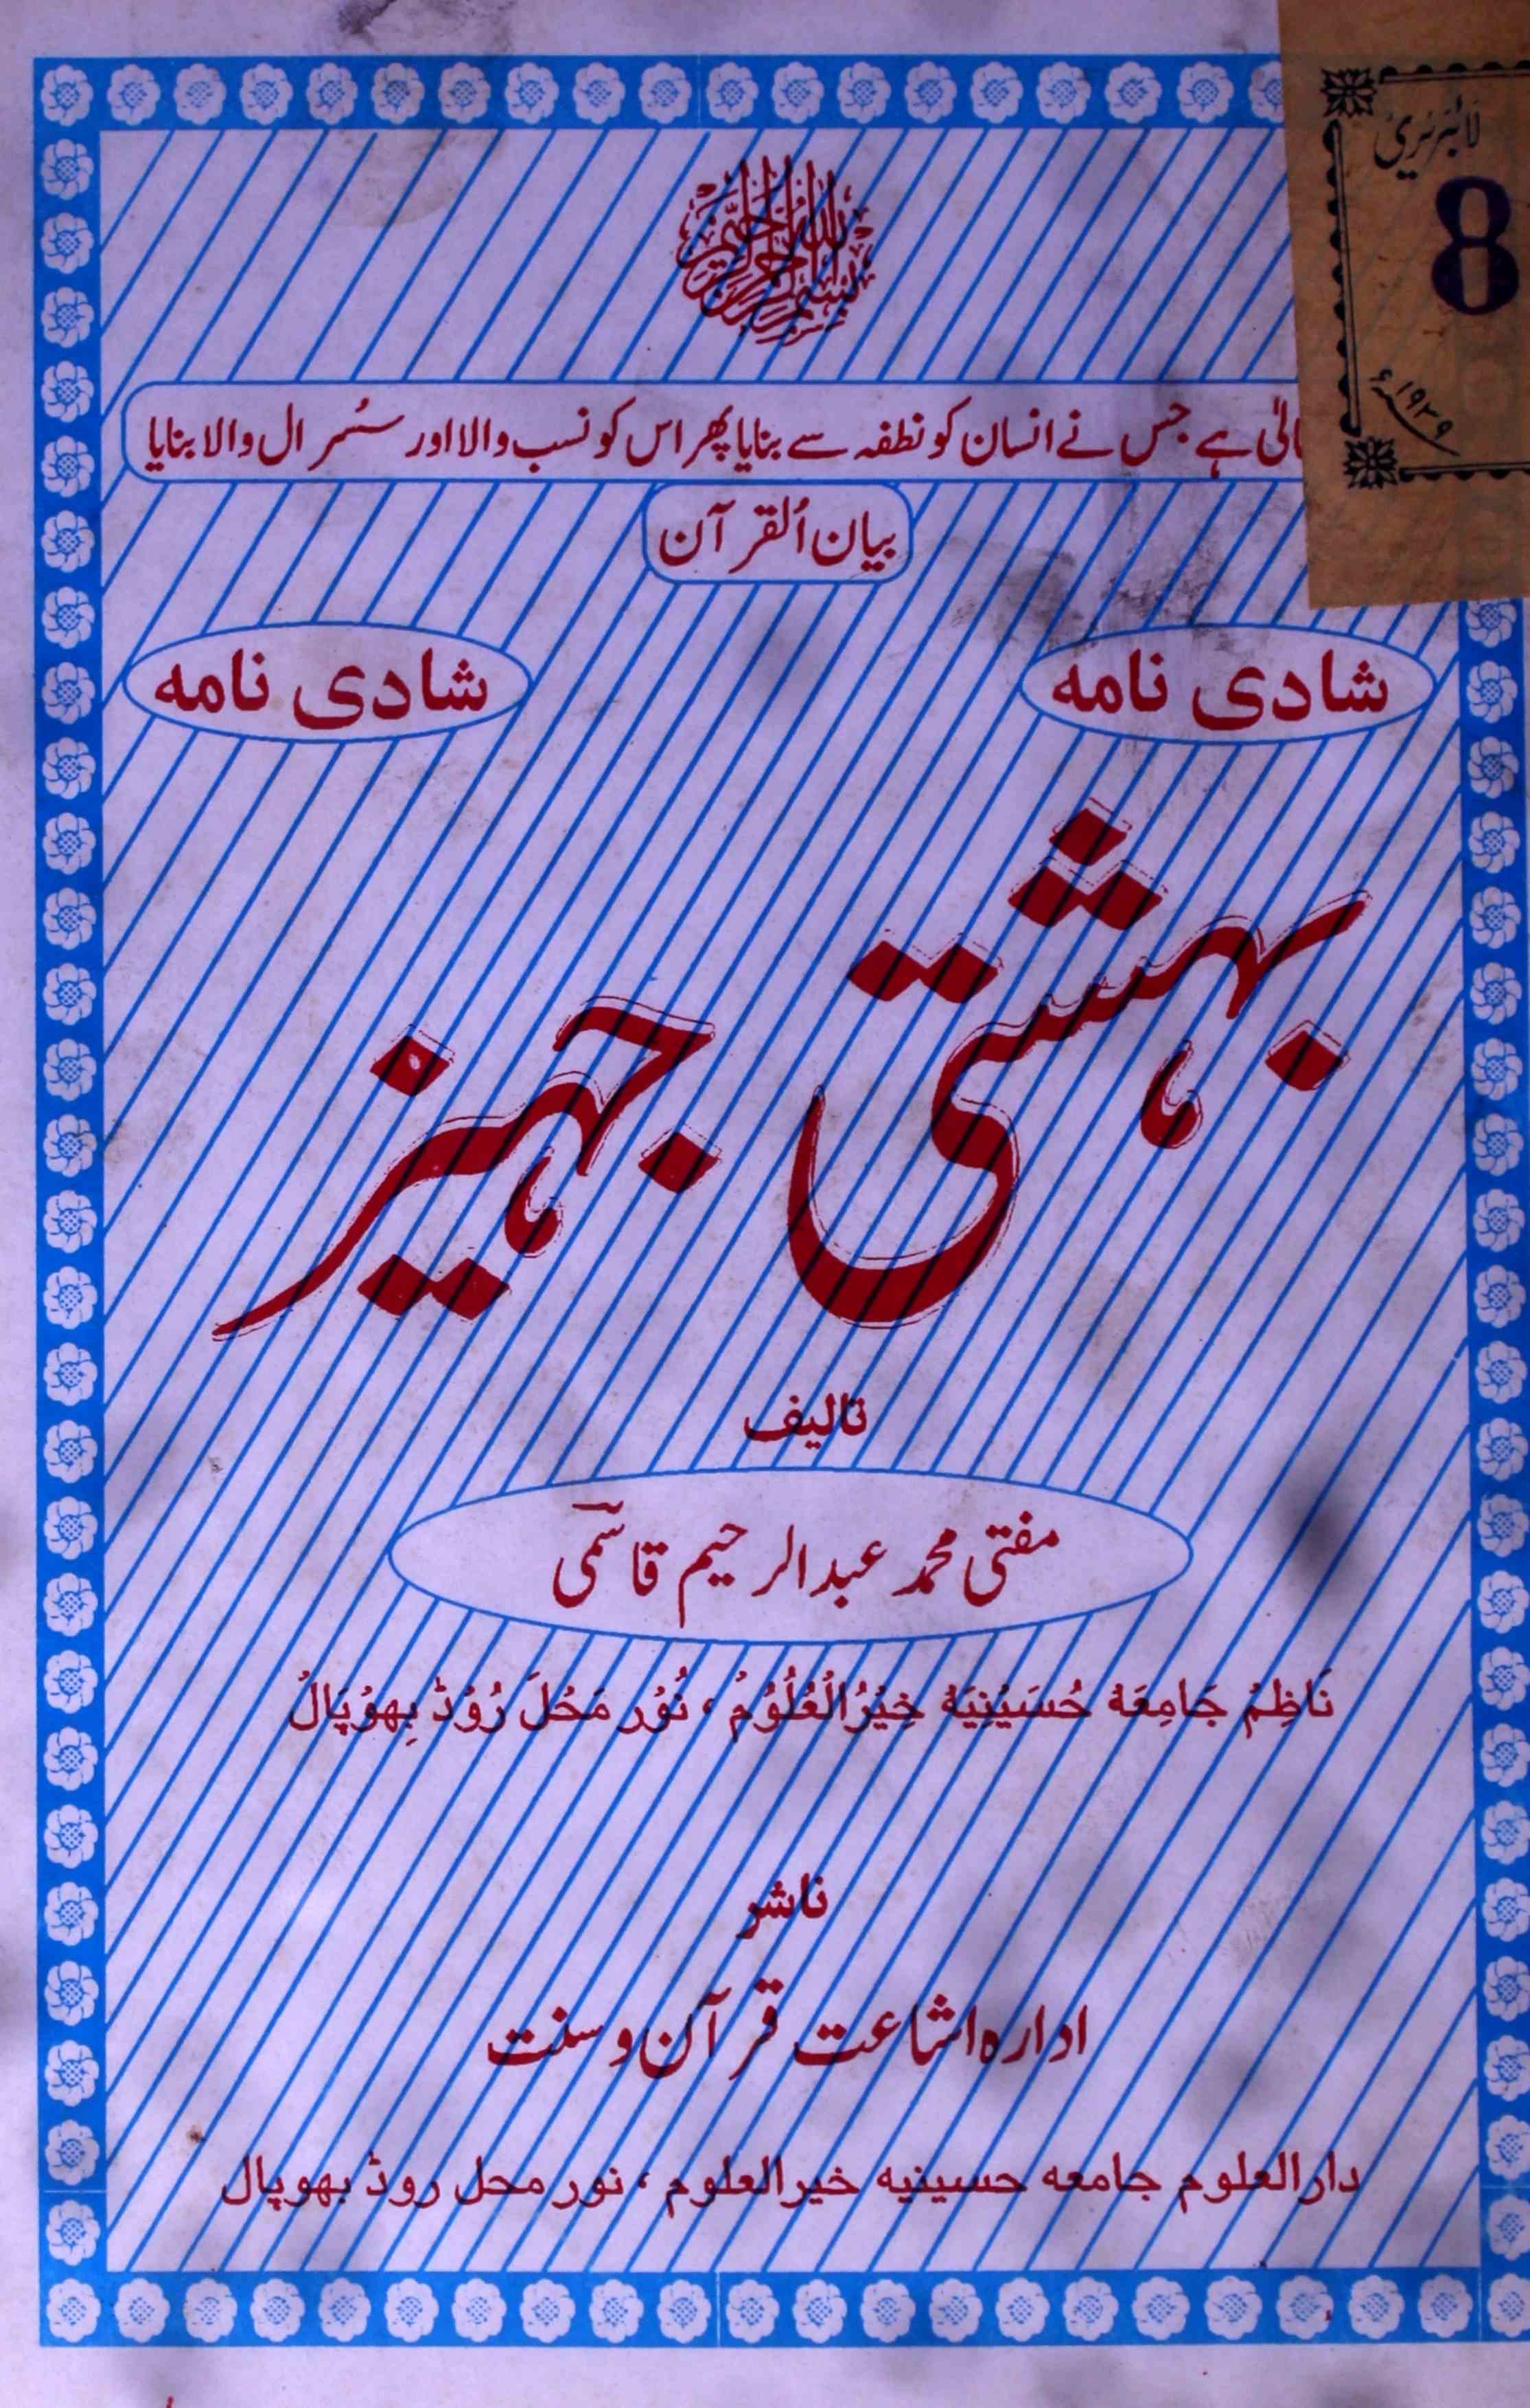 بسم الله الرحمن الرحيم
لائبریری
8
۱۹۳۹ء
ہے جس نے انسان کو نطفہ سے بنایا پھر اس کو نسب والا اور سُسرال والا بنایا
بیان اُلقرآن
شادی نامہ
شادی نامہ
بہشتی جہیز
تالیف
مفتی محمد عبدالرحیم قاسمی
نَاظِمْ جَامِعَهْ حُسَيْنِيَهْ خَيْرُالْعُلُوُمْ، نُوْر مَحَلْ رُوْڈ بِهوْپَالْ
ناشر
ادارہ اشاعت قرآن و سنت
دارالعلوم جامعه حسینیه خیرالعلوم، نور محل روڈ بهوپال